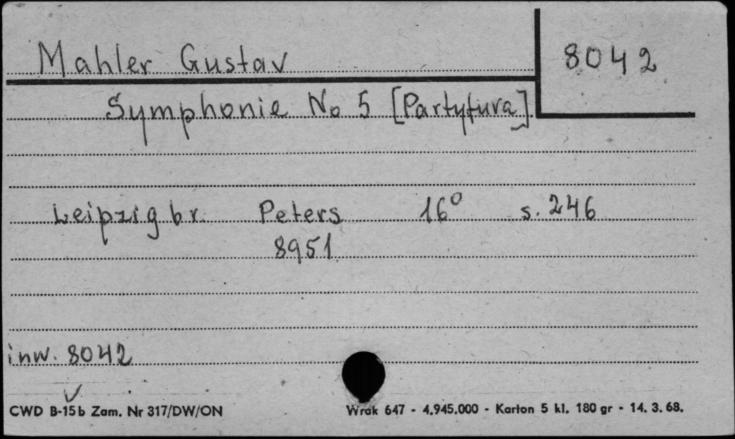 Mahler Gustav
8042
Symphonie No 5 [Partytura]
Leipzig br. Peters 16° s. 246
8951
inw. 8042
CWD B-15b Zam. Nr 317/DW/ON
Wrak 647 - 4.945.000 - Karton 5 kl. 180 gr - 14. 3. 68.